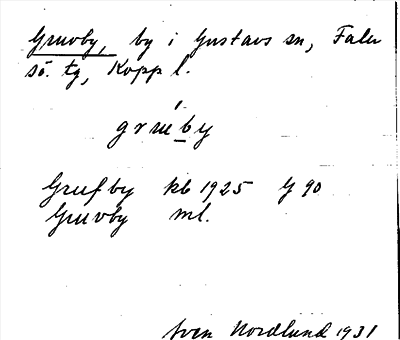 Gruvby, by i Gustavs sn, Falu
sö. tg, Kopp l.
grúeby
Grufby kb 1925 G 90
Gruvby ml.
Sven Nordlund 1931